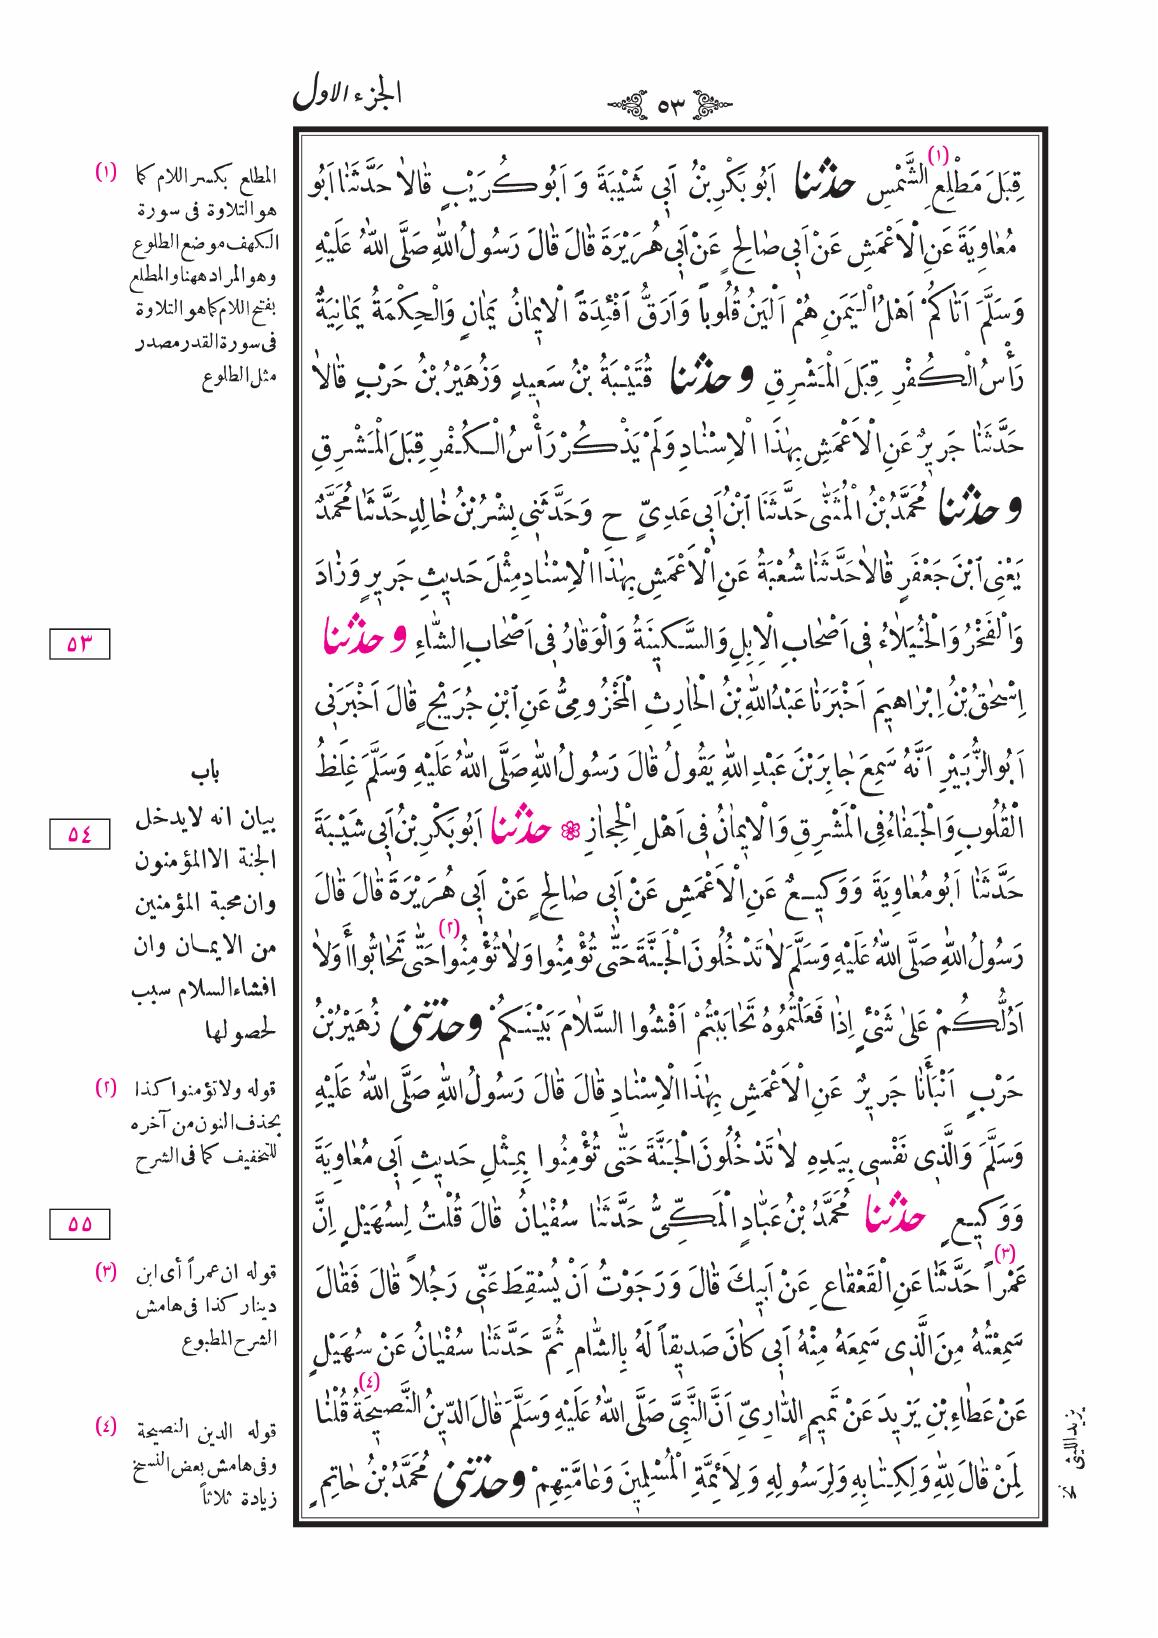 الجزء الاول
٥٣
قِبَلَ مَطْلِعِ (١) الشَّمْسِ حدثنا اَبُو بَكْرِ بْنُ اَبِى شَيْبَةَ وَ اَبُو كُرَيْبٍ قَالاَ حَدَّثَنَا اَبُو
مُعَاوِيَةَ عَنِ الْاَعْمَشِ عَنْ اَبِى صَالِحٍ عَنْ اَبِى هُرَيْرَةَ قَالَ قَالَ رَسُولُ اللهِ صَلَّى اللهُ عَلَيْهِ
وَسَلَّمَ اَتَاكُمْ اَهْلُ الْيَمَنِ هُمْ اَلْيَنُ قُلُوباً وَاَرَقُّ اَفْئِدَةً الْايمَانُ يَمَانٍ وَالْحِكْمَةُ يَمَانِيَةٌ
رَأْسُ الْكُفْرِ قِبَلَ الْمَشْرِقِ و حدثنا قُتَيْبَةُ بْنُ سَعِيدٍ وَزُهَيْرُ بْنُ حَرْبٍ قَالاَ
حَدَّثَنَا جَرِيرٌ عَنِ الْاَعْمَشِ بِهٰذَا الْاِسْنَادِ وَلَمْ يَذْكُرْ رَأْسُ الْكُفْرِ قِبَلَ الْمَشْرِقِ
و حدثنا مُحَمَّدُ بْنُ الْمُثَنّٰى حَدَّثَنَا ابْنُ اَبِى عَدِىٍّ ح وَحَدَّثَنِى بِشْرُ بْنُ خَالِدٍ حَدَّثَنَا مُحَمَّدٌ
يَعْنِى ابْنَ جَعْفَرٍ قَالاَ حَدَّثَنَا شُعْبَةُ عَنِ الْاَعْمَشِ بِهٰذَا الْاِسْنَادِ مِثْلَ حَدِيثِ جَرِيرٍ وَزَادَ
وَالْفَخْرُ وَالْخُيَلَاءُ فِى اَصْحَابِ الْاِبِلِ وَالسَّكِينَةُ وَالْوَقَارُ فِى اَصْحَابِ الشَّاءِ و حدثنا
اِسْحٰقُ بْنُ اِبْرَاهِيمَ اَخْبَرَنَا عَبْدُ اللهِ بْنُ الْحَارِثِ الْمَخْزُومِىُّ عَنِ ابْنِ جُرَيْجٍ قَالَ اَخْبَرَنِى
اَبُو الزُّبَيْرِ اَنَّهُ سَمِعَ جَابِرَ بْنَ عَبْدِ اللهِ يَقُولُ قَالَ رَسُولُ اللهِ صَلَّى اللهُ عَلَيْهِ وَسَلَّمَ غِلَظُ
الْقُلُوبِ وَالْجَفَاءُ فِى الْمَشْرِقِ وَالْايمَانُ فِى اَهْلِ الْحِجَازِ ❁ حدثنا اَبُو بَكْرِ بْنُ اَبِى شَيْبَةَ
حَدَّثَنَا اَبُو مُعَاوِيَةَ وَوَكِيعٌ عَنِ الْاَعْمَشِ عَنْ اَبِى صَالِحٍ عَنْ اَبِى هُرَيْرَةَ قَالَ قَالَ
رَسُولُ اللهِ صَلَّى اللهُ عَلَيْهِ وَسَلَّمَ لاَ تَدْخُلُونَ الْجَنَّةَ حَتّٰى تُؤْمِنُوا وَلاَ تُؤْمِنُوا (٢) حَتّٰى تَحَابُّوا اَوَلاَ
اَدُلُّكُمْ عَلىٰ شَىْءٍ اِذَا فَعَلْتُمُوهُ تَحَابَبْتُمْ اَفْشُوا السَّلاَمَ بَيْنَكُمْ وحدثنى زُهَيْرُ بْنُ
حَرْبٍ اَنْبَأَنَا جَرِيرٌ عَنِ الْاَعْمَشِ بِهٰذَا الْاِسْنَادِ قَالَ قَالَ رَسُولُ اللهِ صَلَّى اللهُ عَلَيْهِ
وَسَلَّمَ وَالَّذِى نَفْسِى بِيَدِهِ لاَ تَدْخُلُونَ الْجَنَّةَ حَتّٰى تُؤْمِنُوا بِمِثْلِ حَدِيثِ اَبِى مُعَاوِيَةَ
وَوَكِيعٍ حدثنا مُحَمَّدُ بْنُ عَبَّادٍ الْمَكِّىُّ حَدَّثَنَا سُفْيَانُ قَالَ قُلْتُ لِسُهَيْلٍ اِنَّ
عَمْراً (٣) حَدَّثَنَا عَنِ الْقَعْقَاعِ عَنْ اَبِيكَ قَالَ وَرَجَوْتُ اَنْ يُسْقِطَ عَنِّى رَجُلاً قَالَ فَقَالَ
سَمِعْتُهُ مِنَ الَّذِى سَمِعَهُ مِنْهُ اَبِى كَانَ صَدِيقاً لَهُ بِالشَّامِ ثُمَّ حَدَّثَنَا سُفْيَانُ عَنْ سُهَيْلٍ
عَنْ عَطَاءِ بْنِ يَزِيدَ عَنْ تَمِيمٍ الدَّارِىِّ اَنَّ النَّبِىَّ صَلَّى اللهُ عَلَيْهِ وَسَلَّمَ قَالَ الدِّينُ النَّصِيحَةُ (٤) قُلْنَا
لِمَنْ قَالَ لِلّٰهِ وَلِكِتَابِهِ وَلِرَسُولِهِ وَلِاَئِمَّةِ الْمُسْلِمِينَ وَعَامَّتِهِمْ وحدثنى مُحَمَّدُ بْنُ حَاتِمٍ
(١) المطلع بكسر اللام كما
هو التلاوة فى سورة
الكهف موضع الطلوع
وهو المراد ههنا والمطلع
بفتح اللام كما هو التلاوة
فى سورة القدر مصدر
مثل الطلوع
٥٣
باب
٥٤
بيان انه لا يدخل
الجنة الا المؤمنون
وان محبة المؤمنين
من الايمان وان
افشاء السلام سبب
لحصولها
(٢) قوله ولا تؤمنوا كذا
بحذف النون من آخره
للتخفيف كما فى الشرح
٥٥
(٣) قوله ان عمراً أى ابن
دينار كذا فى هامش
الشرح المطبوع
(٤) قوله الدين النصيحة
وفى هامش بعض النسخ
زيادة ثلاثاً
يزيد الليثى نخ